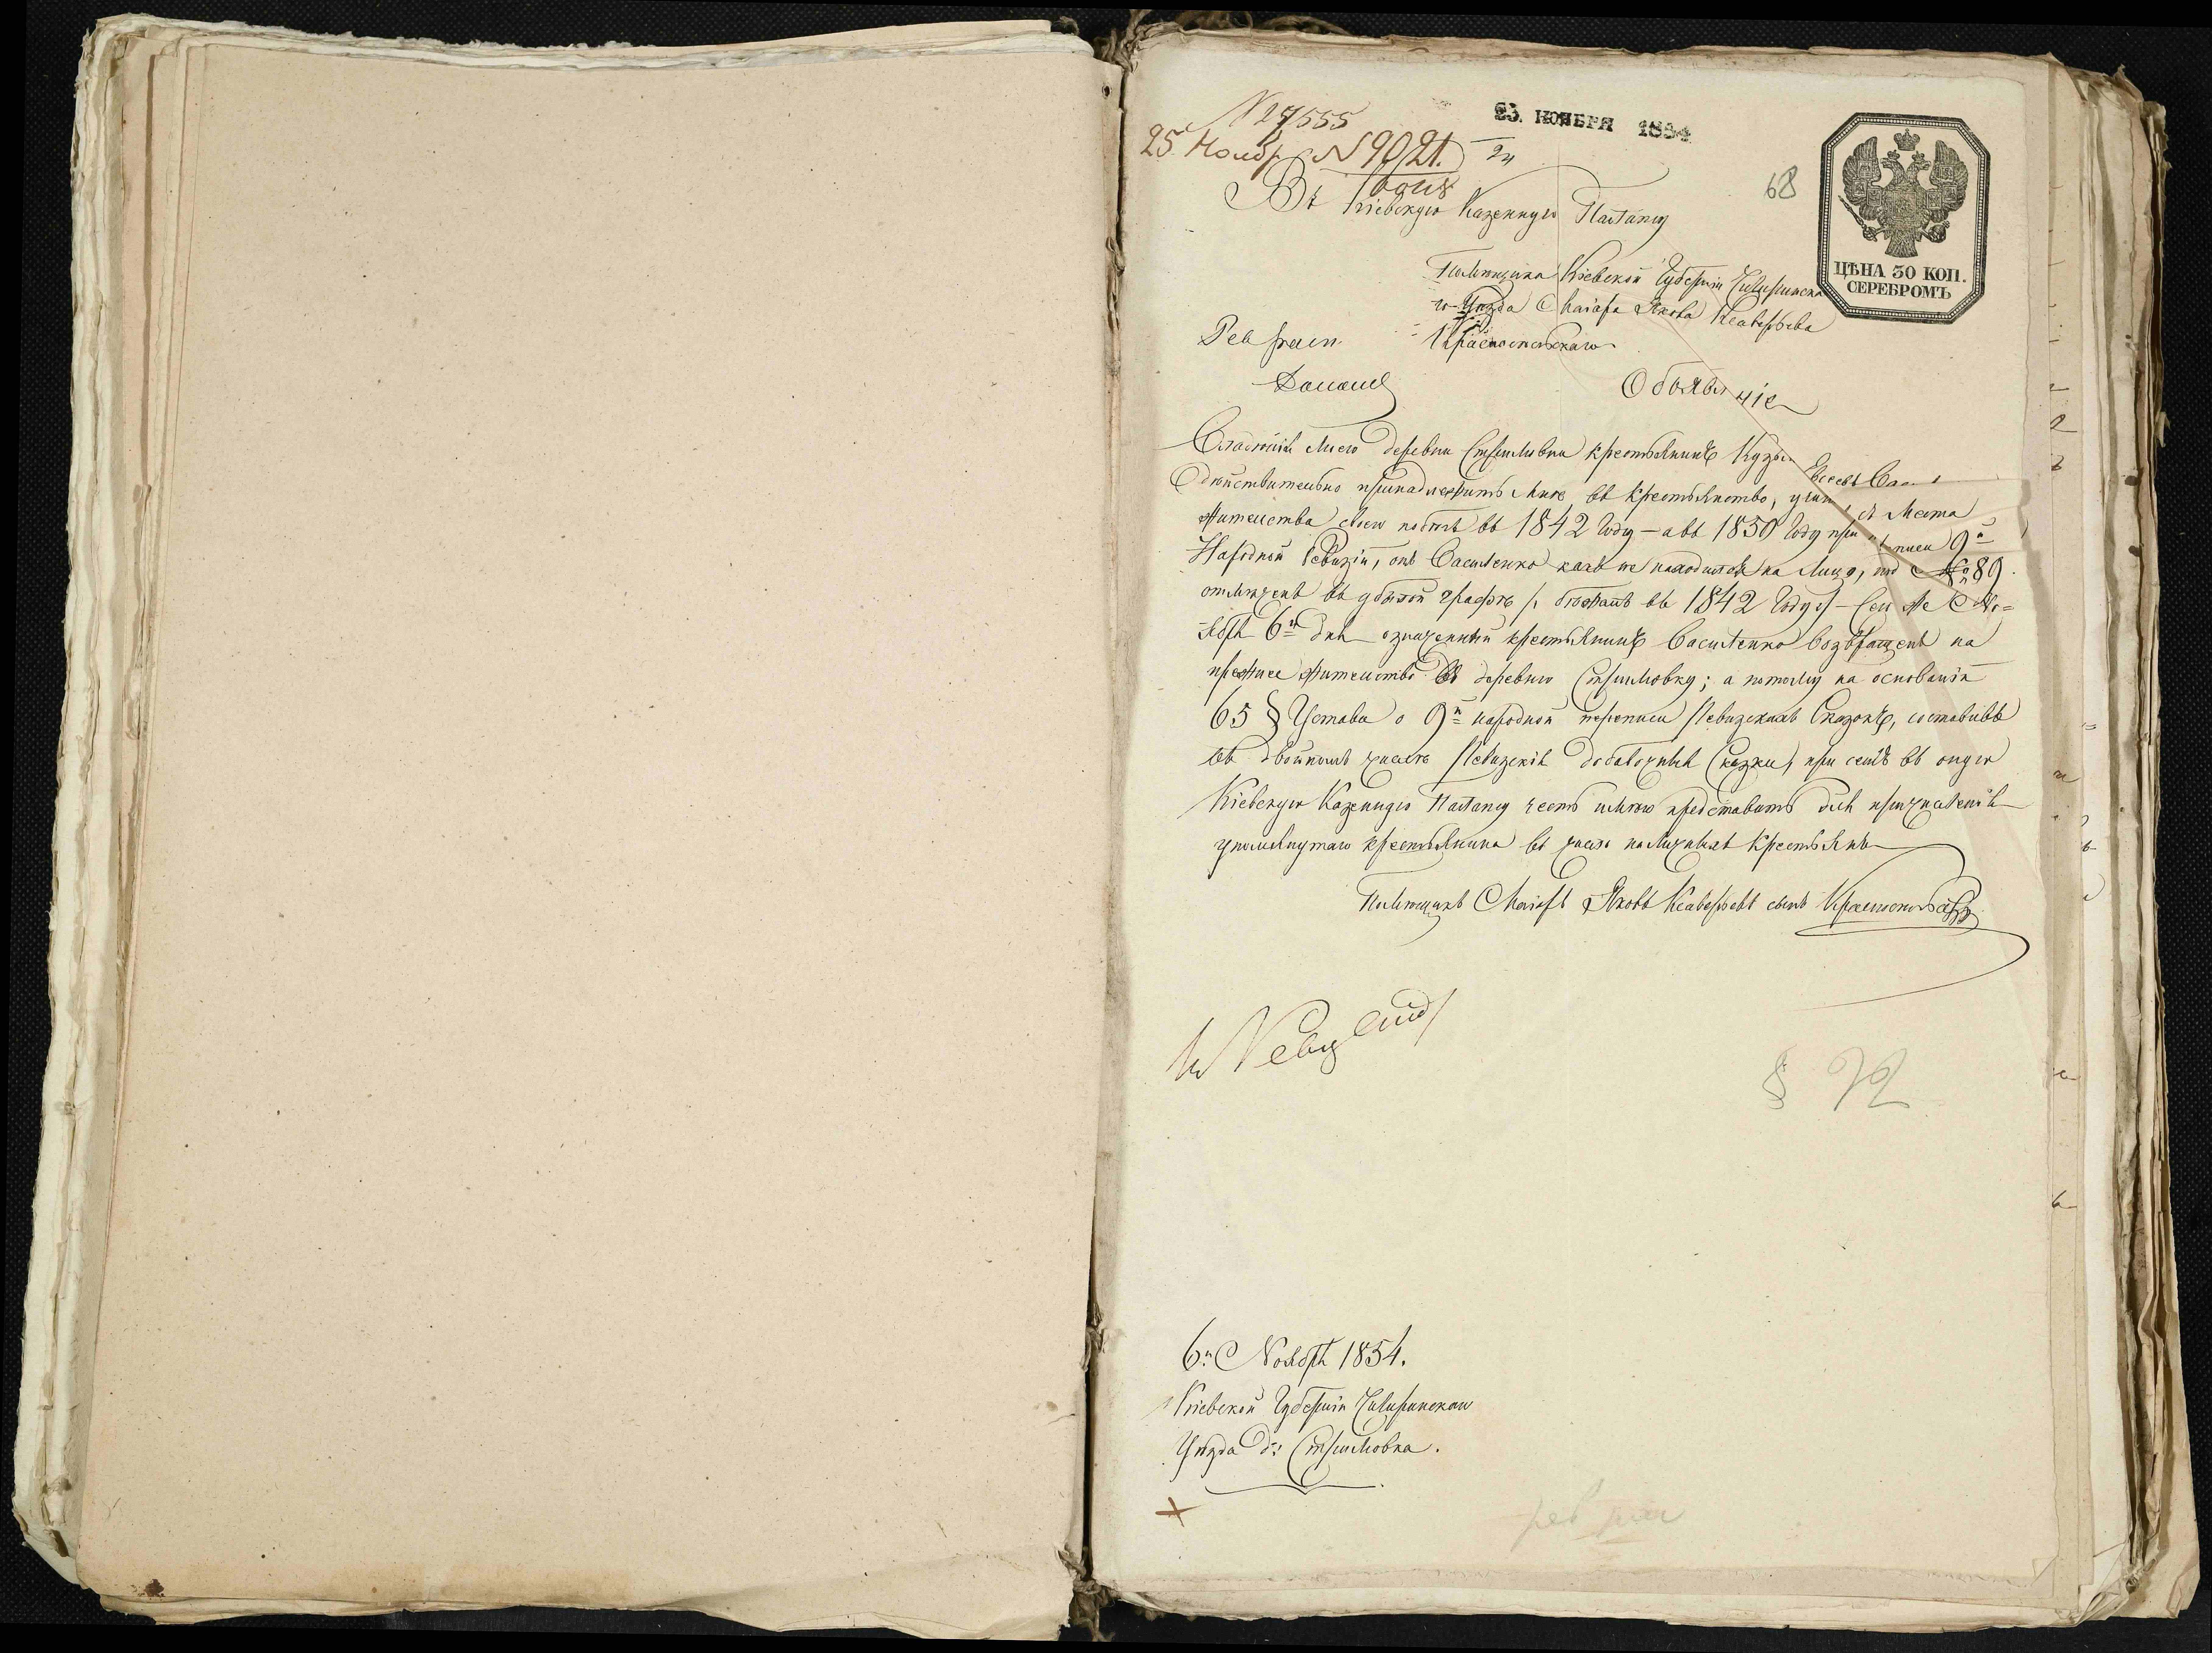 N 27555
23 НОЯБРЯ 1854
25 Ноябр. N 9021.
24
68
ЦѢНА 30 КОП.
СЕРЕБРОМЪ
Въ Кіевскую Казенную Палату
Помѣщика Кіевской Губерніи Чигиринска
го Уѣзда Маіора Якова Ксаверьева
Краснопольскаго
Рев
Объявленіе
моего деревни Стримовки крестьянинъ Кузьма Васи
дѣйствительно принадлежитъ мнѣ въ крестьянство, съ Места
жительства своего побегъ въ 1842 году – а въ 1850 году при писи 9й
Народной Ревизіи, онъ Василенко какъ не находился на Лицо, под № 89
отмѣченъ въ убылой графѣ /: бѣжалъ въ 1842 году :/ – Сего же Но=
ября 6го дня означенный крестьянинъ Василенко возвращенъ на
прежнее жительство въ деревню Стримовку; а потому на основаніи
65 § Устава о 9й народной переписи Ревизскихъ Сказокъ, составивъ
въ двойномъ числѣ Ревизскія добавочныя Сказки, при семъ въ оную
Кіевскую Казенную Палату честь имѣю представить для причисленія
упомянутаго крестьянина въ число наличныхъ крестьянъ
Помѣщикъ Маіоръ Яковъ Ксаверьевъ сынъ Краснопольскій
§ 72
6го Ноября 1854.
Кіевской Губерніи Чигиринскаго
Уѣзда д: Стримовка.